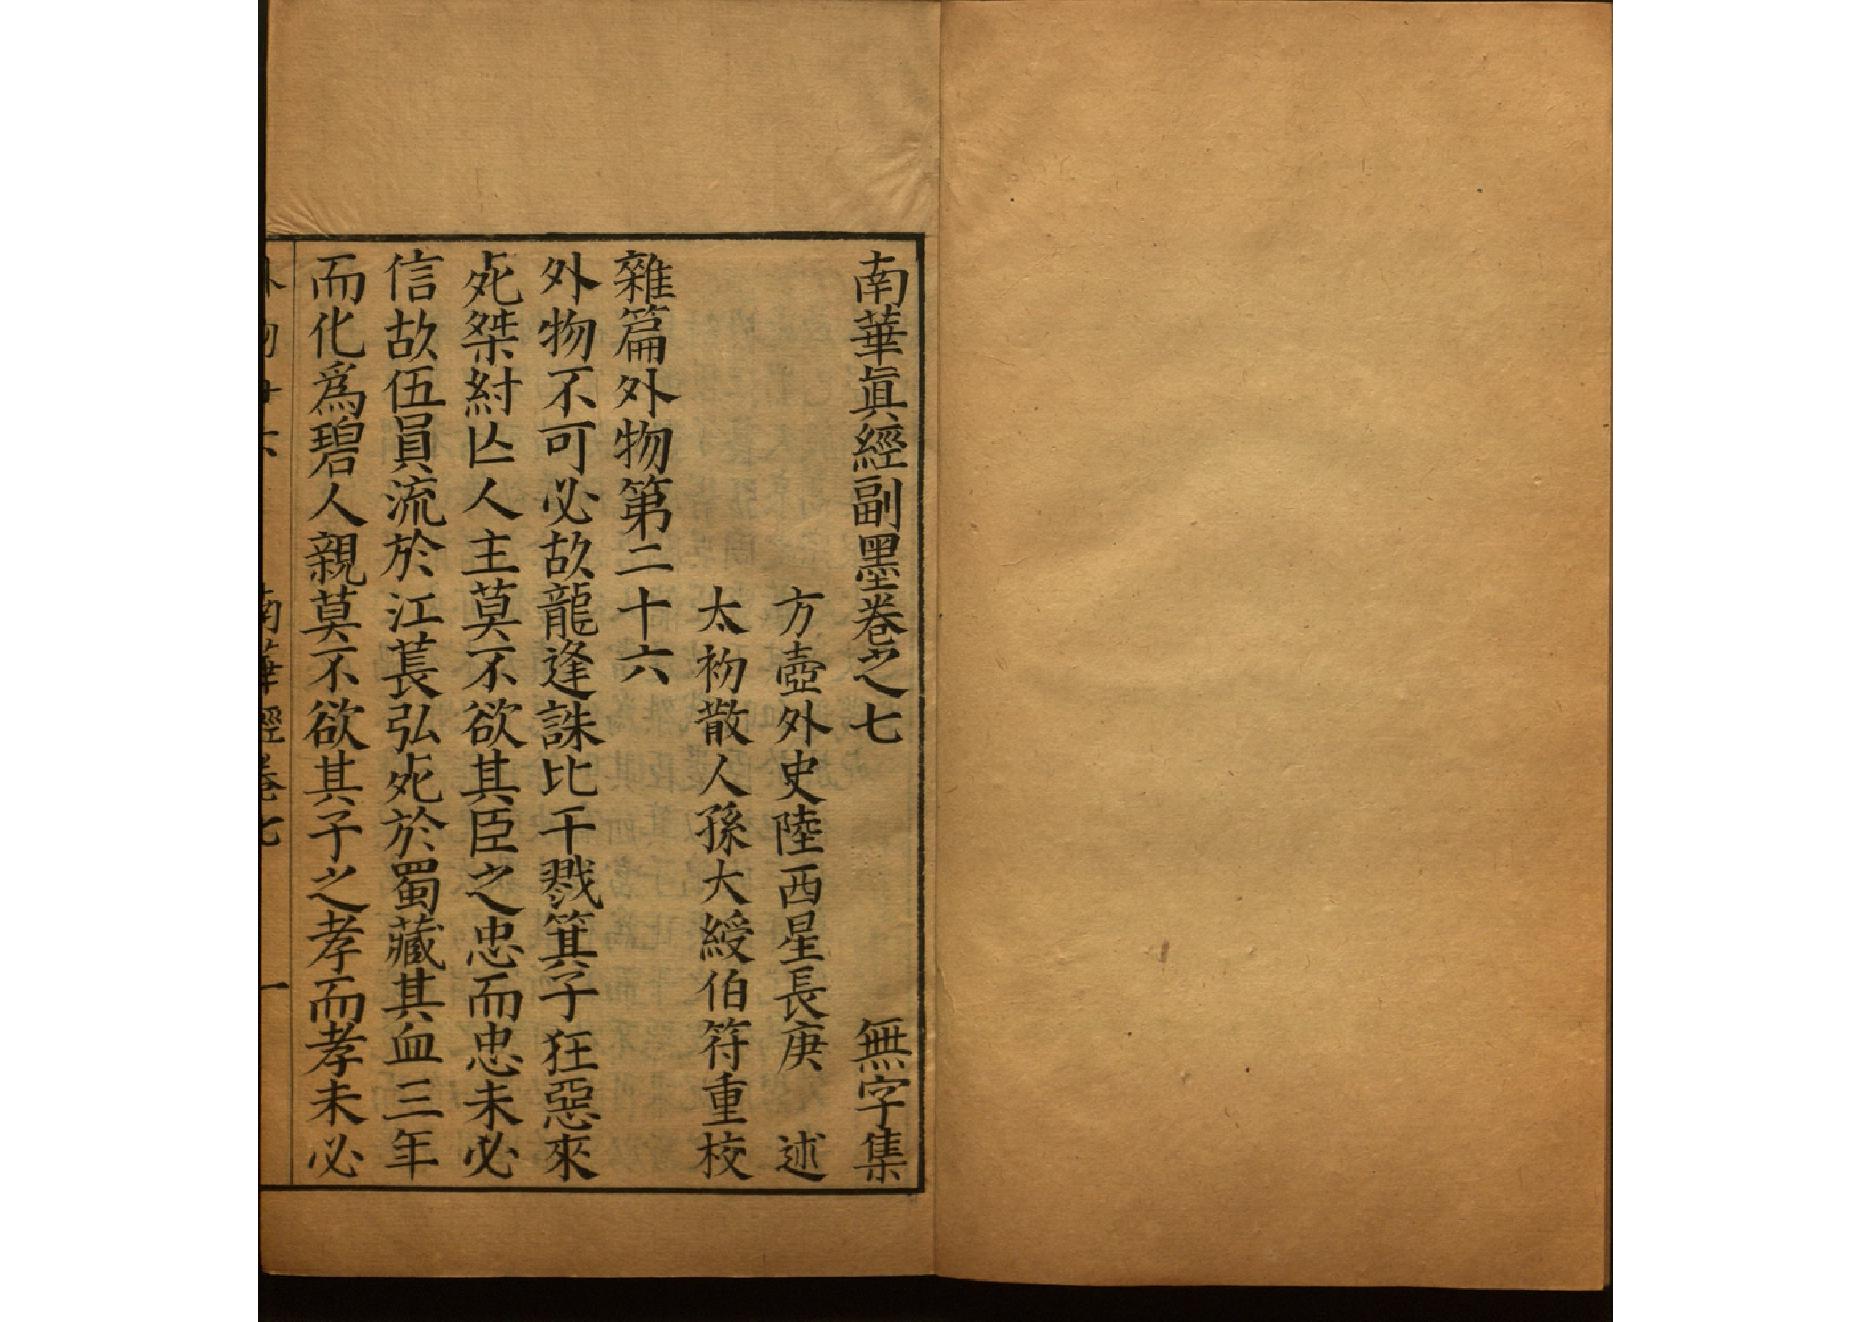 南華眞經副墨卷之七 無字集
方壺外史陸西星長庚 述
太初散人孫大綬伯符重校
雜篇外物第二十六
外物不可必故龍逢誅比干戮箕子狂惡來
死桀紂亾人主莫不欲其臣之忠而忠未必
信故伍員流於江萇弘死於蜀藏其血三年
而化爲碧人親莫不欲其子之孝而孝未必
外物廿六 南華經卷七 一